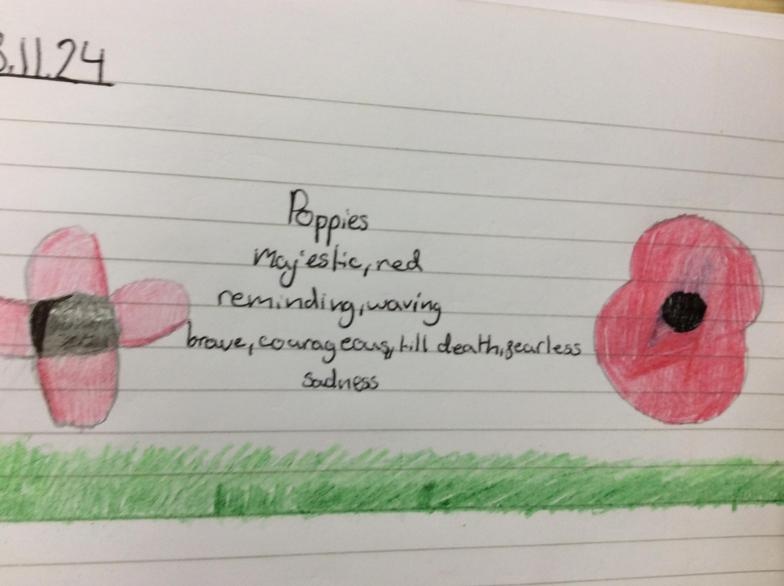 8.11.24
Poppies
Majestic, red
reminding, waving
brave, courageous, till death, fearless
sadness